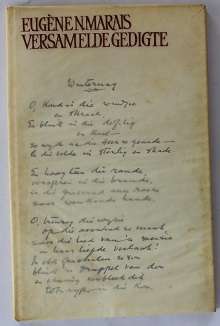 EUGÈNE N. MARAIS
VERSAMELDE GEDIGTE
Winternag
O, koud is die windjie
en skraal
En blink in die dof-lig
en kaal
so wyd as die Heere se genade
lê die velde in sterlig en skade
En hoog in die rande
versprei in die brande
is die grassaad aan roere
soos winkende hande
O, treurig die wysie
op die ooswind se maat
soos die lied van 'n meisie
in haar liefde verlaat
In elk grashalm se vou
blink 'n druppel van dou
en vinnig verbleek dit
tot ryp in die kou